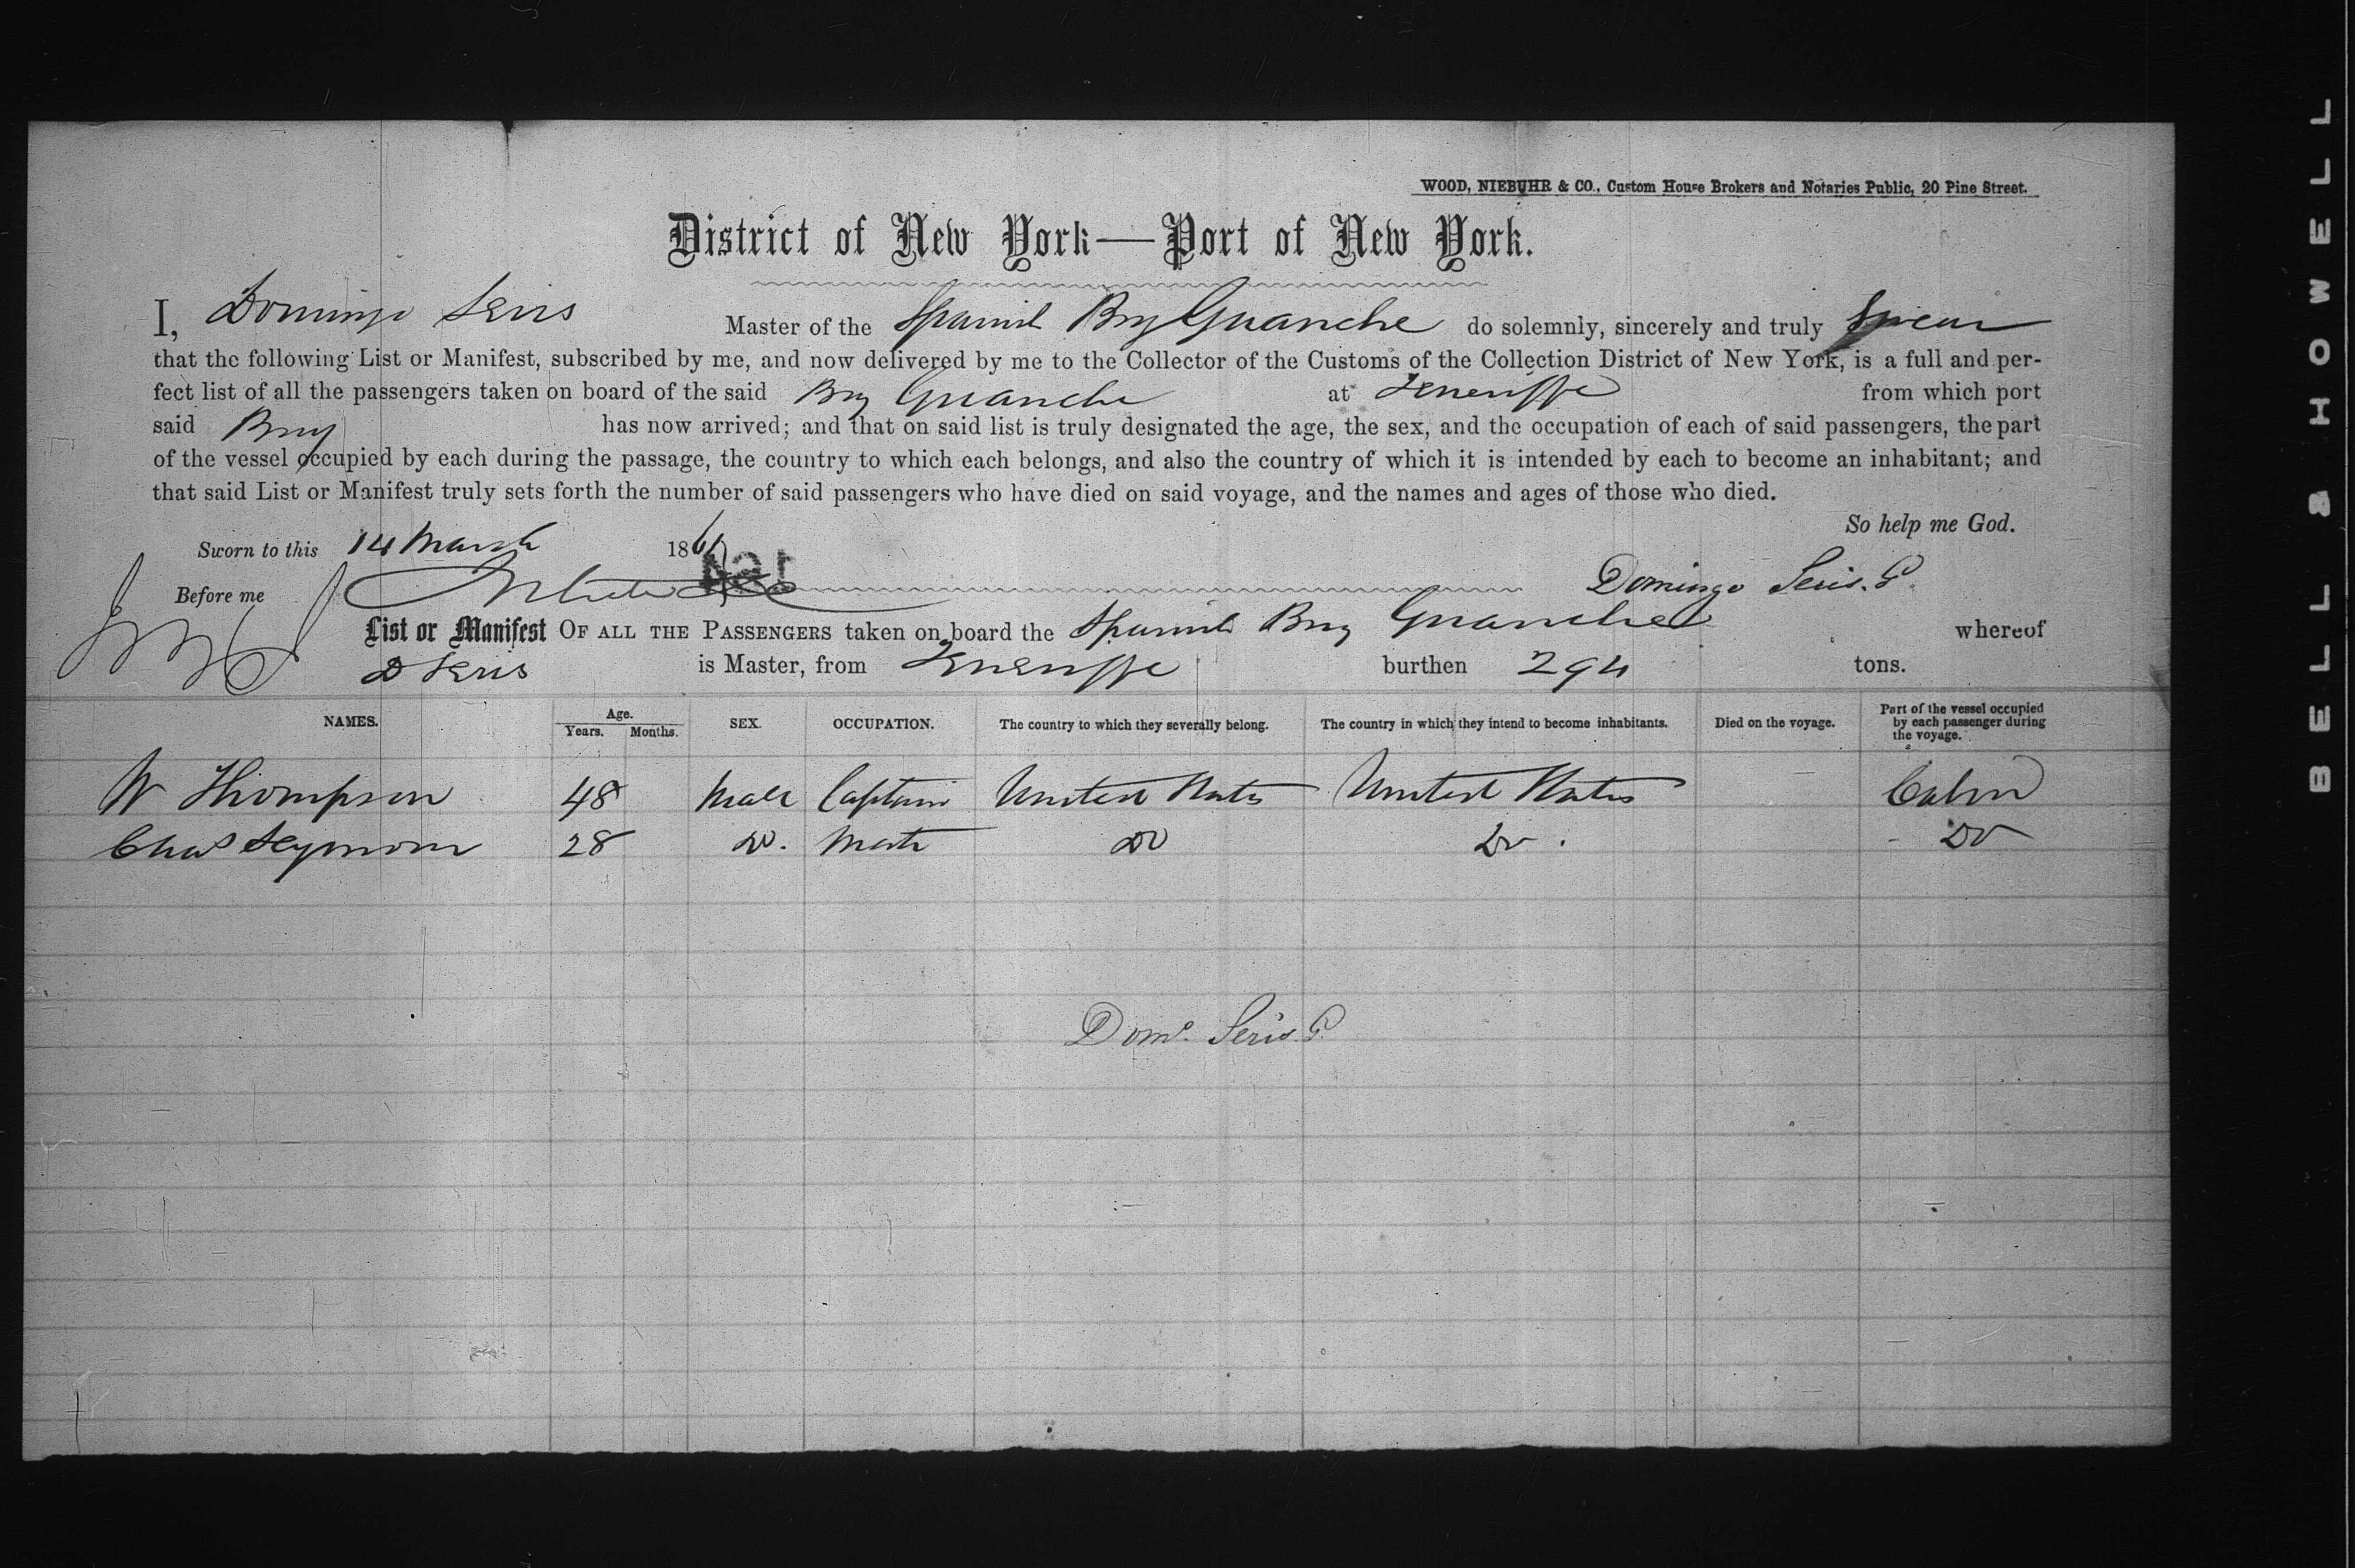 WOOD, NIEBUHR & CO., Custom House Brokers and Notaries Public, 20 Pine Street.
District of New York—Port of New York.
I, Domingo Seris Master of the Spanish Brig Guanche do solemnly, sincerely and truly Swear
that the following List or Manifest, subscribed by me, and now delivered by me to the Collector of the Customs of the Collection District of New York, is a full and per-
fect list of all the passengers taken on board of the said Brig Guanche at Teneriffe from which port
said Brig has now arrived; and that on said list is truly designated the age, the sex, and the occupation of each of said passengers, the part
of the vessel occupied by each during the passage, the country to which each belongs, and also the country of which it is intended by each to become an inhabitant; and
that said List or Manifest truly sets forth the number of said passengers who have died on said voyage, and the names and ages of those who died.
So help me God.
Sworn to this 14 March 1861
Before me Domingo Seris. G.
List or Manifest OF ALL THE PASSENGERS taken on board the Spanish Brig Guanche whereof
D Seris is Master, from Teneriffe burthen 294 tons.
NAMES. Age. Years. Months. SEX. OCCUPATION. The country to which they severally belong. The country in which they intend to become inhabitants. Died on the voyage. Part of the vessel occupied by each passenger during the voyage.
W Thompson 48 Male Captain United States United States Cabin
Chas Seymour 28 Do. Mate Do Do. Do
Domo. Seris. G.
BELL & HOWELL